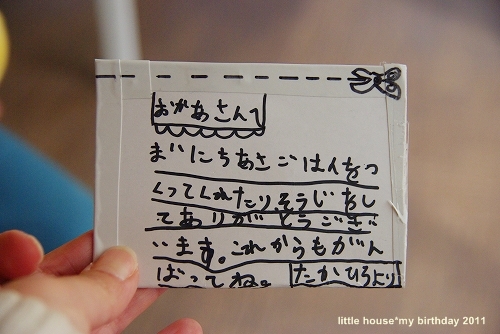 おかあさんへ
まいにちあさごはんをつ
くってくれたりそうじをし
てありがとうござ
います。これからもがん
ばってね。 たかひろより
little house*my birthday 2011